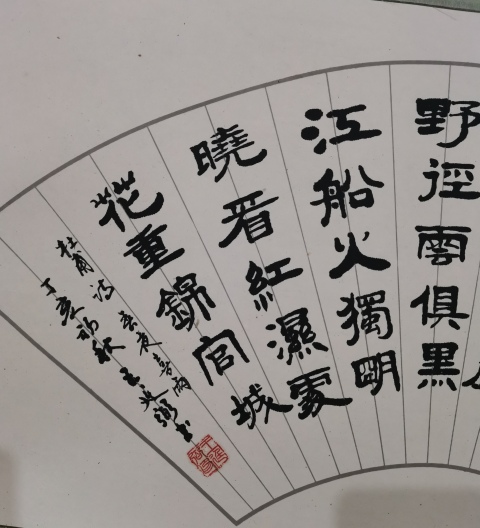 野徑雲俱黑
江船火獨明
曉看紅濕處
花重錦官城
杜甫诗春夜喜雨
丁亥初秋王